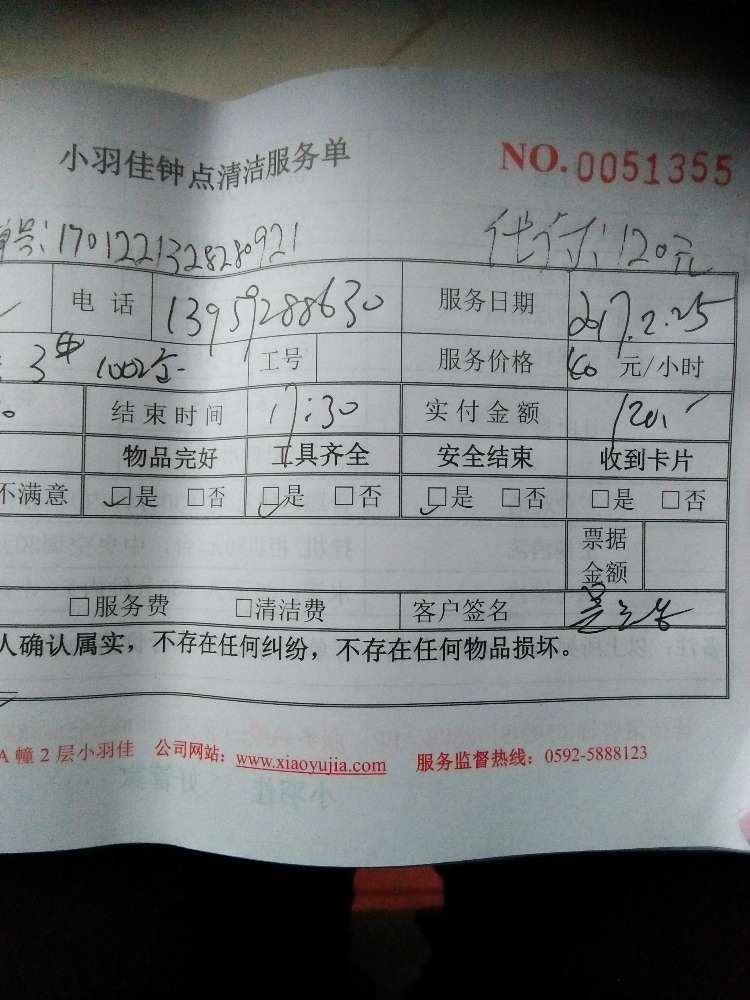 小羽佳钟点清洁服务单 NO.0051355
单号:1701221328280921 代付:120元
电话 13959288630 服务日期 2017.2.25
3# 1002室 工号 服务价格 40 元/小时
结束时间 17:30 实付金额 120
物品完好 工具齐全 安全结束 收到卡片
不满意 ☑是 □否 ☑是 □否 ☑是 □否 □是 □否
票据
金额
□服务费 □清洁费 客户签名
人确认属实，不存在任何纠纷，不存在任何物品损坏。
A 幢 2 层小羽佳 公司网站：www.xiaoyujia.com 服务监督热线：0592-5888123